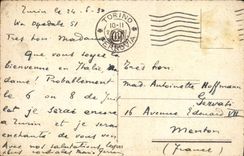 Turin le 24-5-30
Via Ospedale 51
Très bon Madame
Que vous soyez
Bienvenue en Italie Ma-
dame! Probablement
le 6 ou 8 de Jui
let je serai encore
a Turin et je suis
enchantée de vous voir
Avec nos salutations
TORINO
10-11
FERROVIA
Très bon.
Mad. Antoinette Hoffmann
Servati
16 Avenue Edouard VII
Menton
(France)